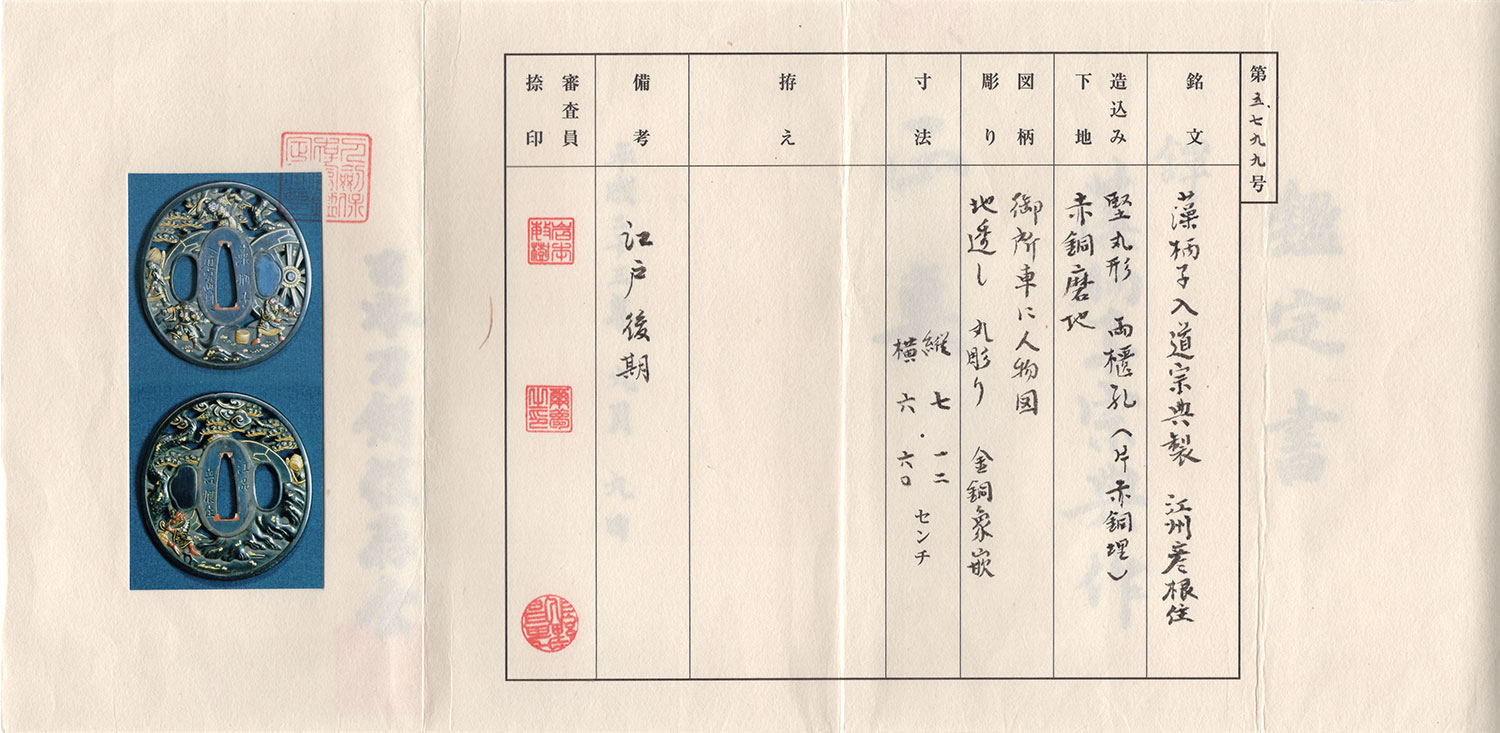 第五、七九九号
銘文
藻柄子入道宗典製 江州彦根住
造込み
下地
竪丸形 両櫃孔（片赤銅埋）
赤銅磨地
図柄
彫り
御所車に人物図
地透し 丸彫り 金銅象嵌
寸法
縦 七・一二
横 六・六〇 センチ
拵え
備考
江戸後期
審査員
捺印